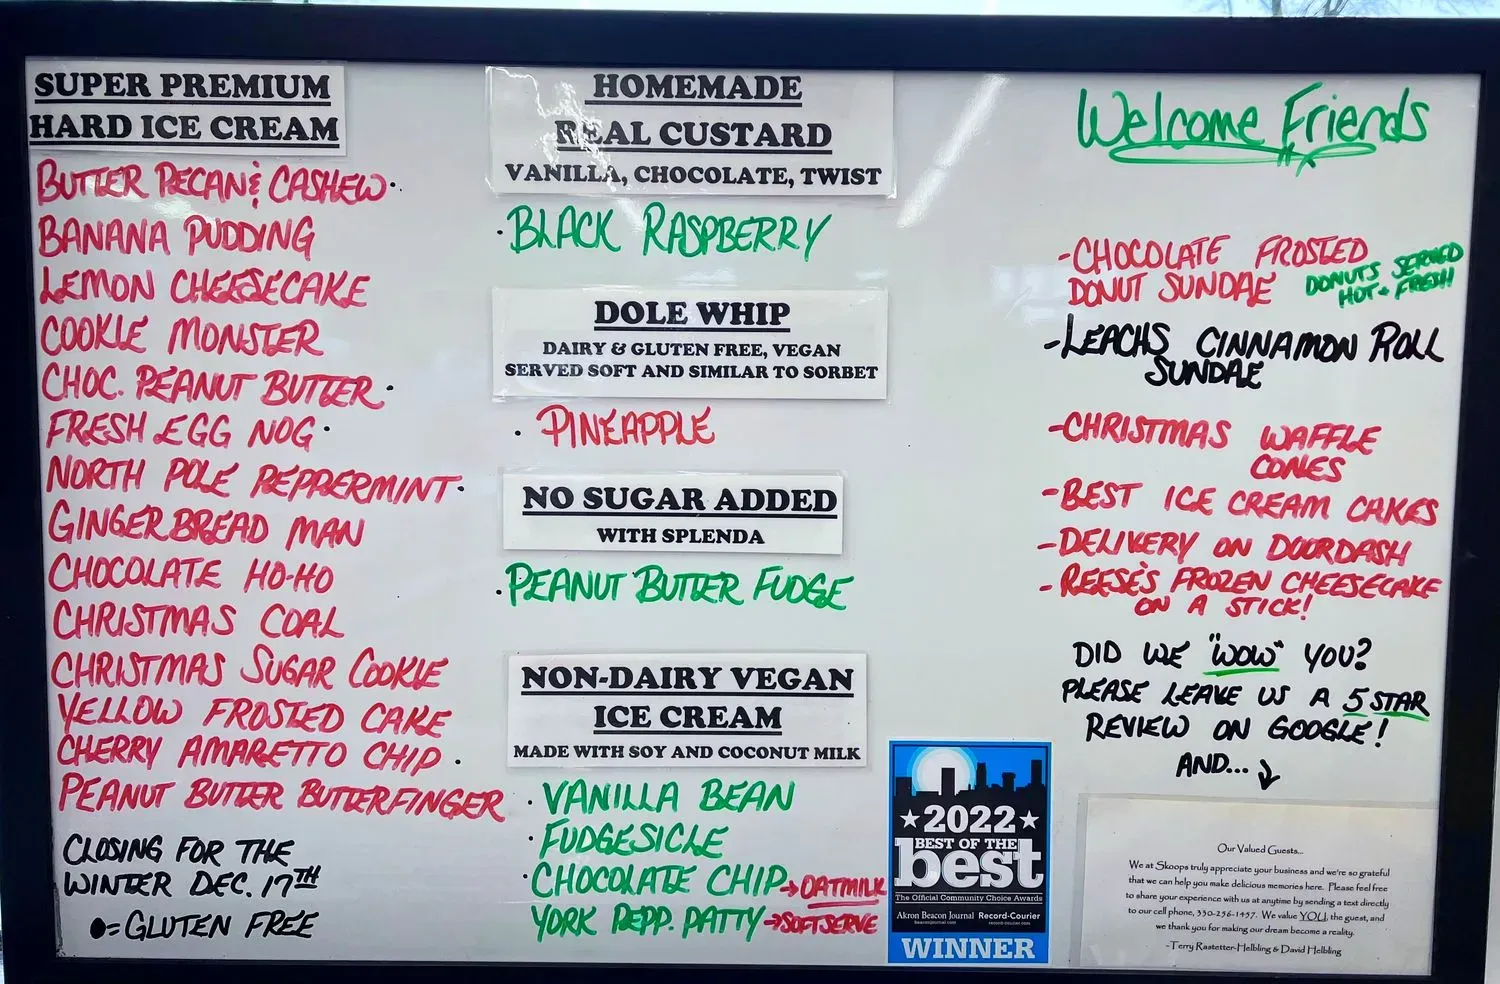 SUPER PREMIUM
HARD ICE CREAM
BUTTER PECAN & CASHEW •
BANANA PUDDING
LEMON CHEESECAKE
COOKIE MONSTER
CHOC. PEANUT BUTTER •
FRESH EGG NOG •
NORTH POLE PEPPERMINT •
GINGERBREAD MAN
CHOCOLATE HO-HO
CHRISTMAS COAL
CHRISTMAS SUGAR COOKIE
YELLOW FROSTED CAKE
CHERRY AMARETTO CHIP •
PEANUT BUTTER BUTTERFINGER
CLOSING FOR THE
WINTER DEC. 17TH
●= GLUTEN FREE
HOMEMADE
REAL CUSTARD
VANILLA, CHOCOLATE, TWIST
• BLACK RASPBERRY
DOLE WHIP
DAIRY & GLUTEN FREE, VEGAN
SERVED SOFT AND SIMILAR TO SORBET
• PINEAPPLE
NO SUGAR ADDED
WITH SPLENDA
• PEANUT BUTTER FUDGE
NON-DAIRY VEGAN
ICE CREAM
MADE WITH SOY AND COCONUT MILK
• VANILLA BEAN
• FUDGESICLE
• CHOCOLATE CHIP → OATMILK
YORK PEPP. PATTY → SOFTSERVE
★ 2022 ★
BEST OF THE
best
The Official Community Choice Awards
Akron Beacon Journal Record-Courier
beaconjournal.com record-courier.com
WINNER
Welcome Friends
- CHOCOLATE FROSTED
DONUT SUNDAE
DONUTS SERVED
HOT + FRESH
- LEACHS CINNAMON ROLL
SUNDAE
- CHRISTMAS WAFFLE
CONES
- BEST ICE CREAM CAKES
- DELIVERY ON DOORDASH
- REESE'S FROZEN CHEESECAKE
ON A STICK!
DID WE "WOW" YOU?
PLEASE LEAVE US A 5 STAR
REVIEW ON GOOGLE!
AND... ↓
Our Valued Guests...
We at Skoops truly appreciate your business and we're so grateful
that we can help you make delicious memories here. Please feel free
to share your experience with us at anytime by sending a text directly
to our cell phone, 330-256-1457. We value YOU, the guest, and
we thank you for making our dream become a reality.
-Terry Rastetter-Helbling & David Helbling